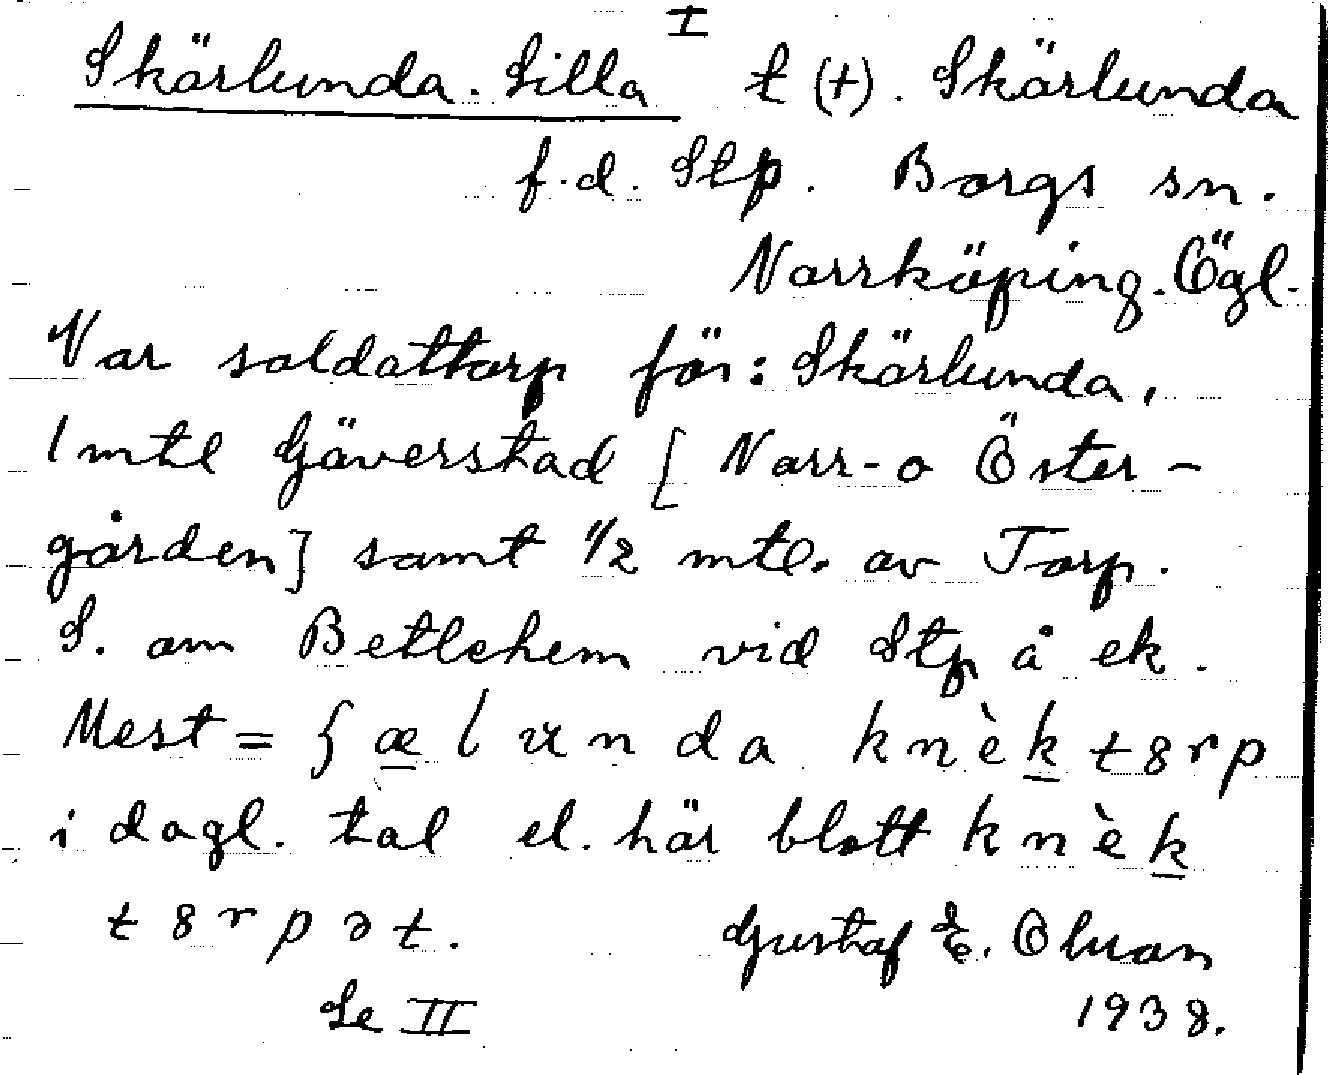 I
Skärlunda. Lilla t (†). Skärlunda
f.d. Stp. Borgs sn.
Norrköping. Ögl.
Var soldattorp för: Skärlunda,
1 mtl Gäverstad [Norr- o Öster-
gården] samt 1/2 mtl. av Torp.
S. om Betlehem vid Stp å ek.
Mest = ʃælunda knèk t8rp
i dagl. tal el. här blott knèk
t8rpət. Gustaf E. Olson
1938.
Se II